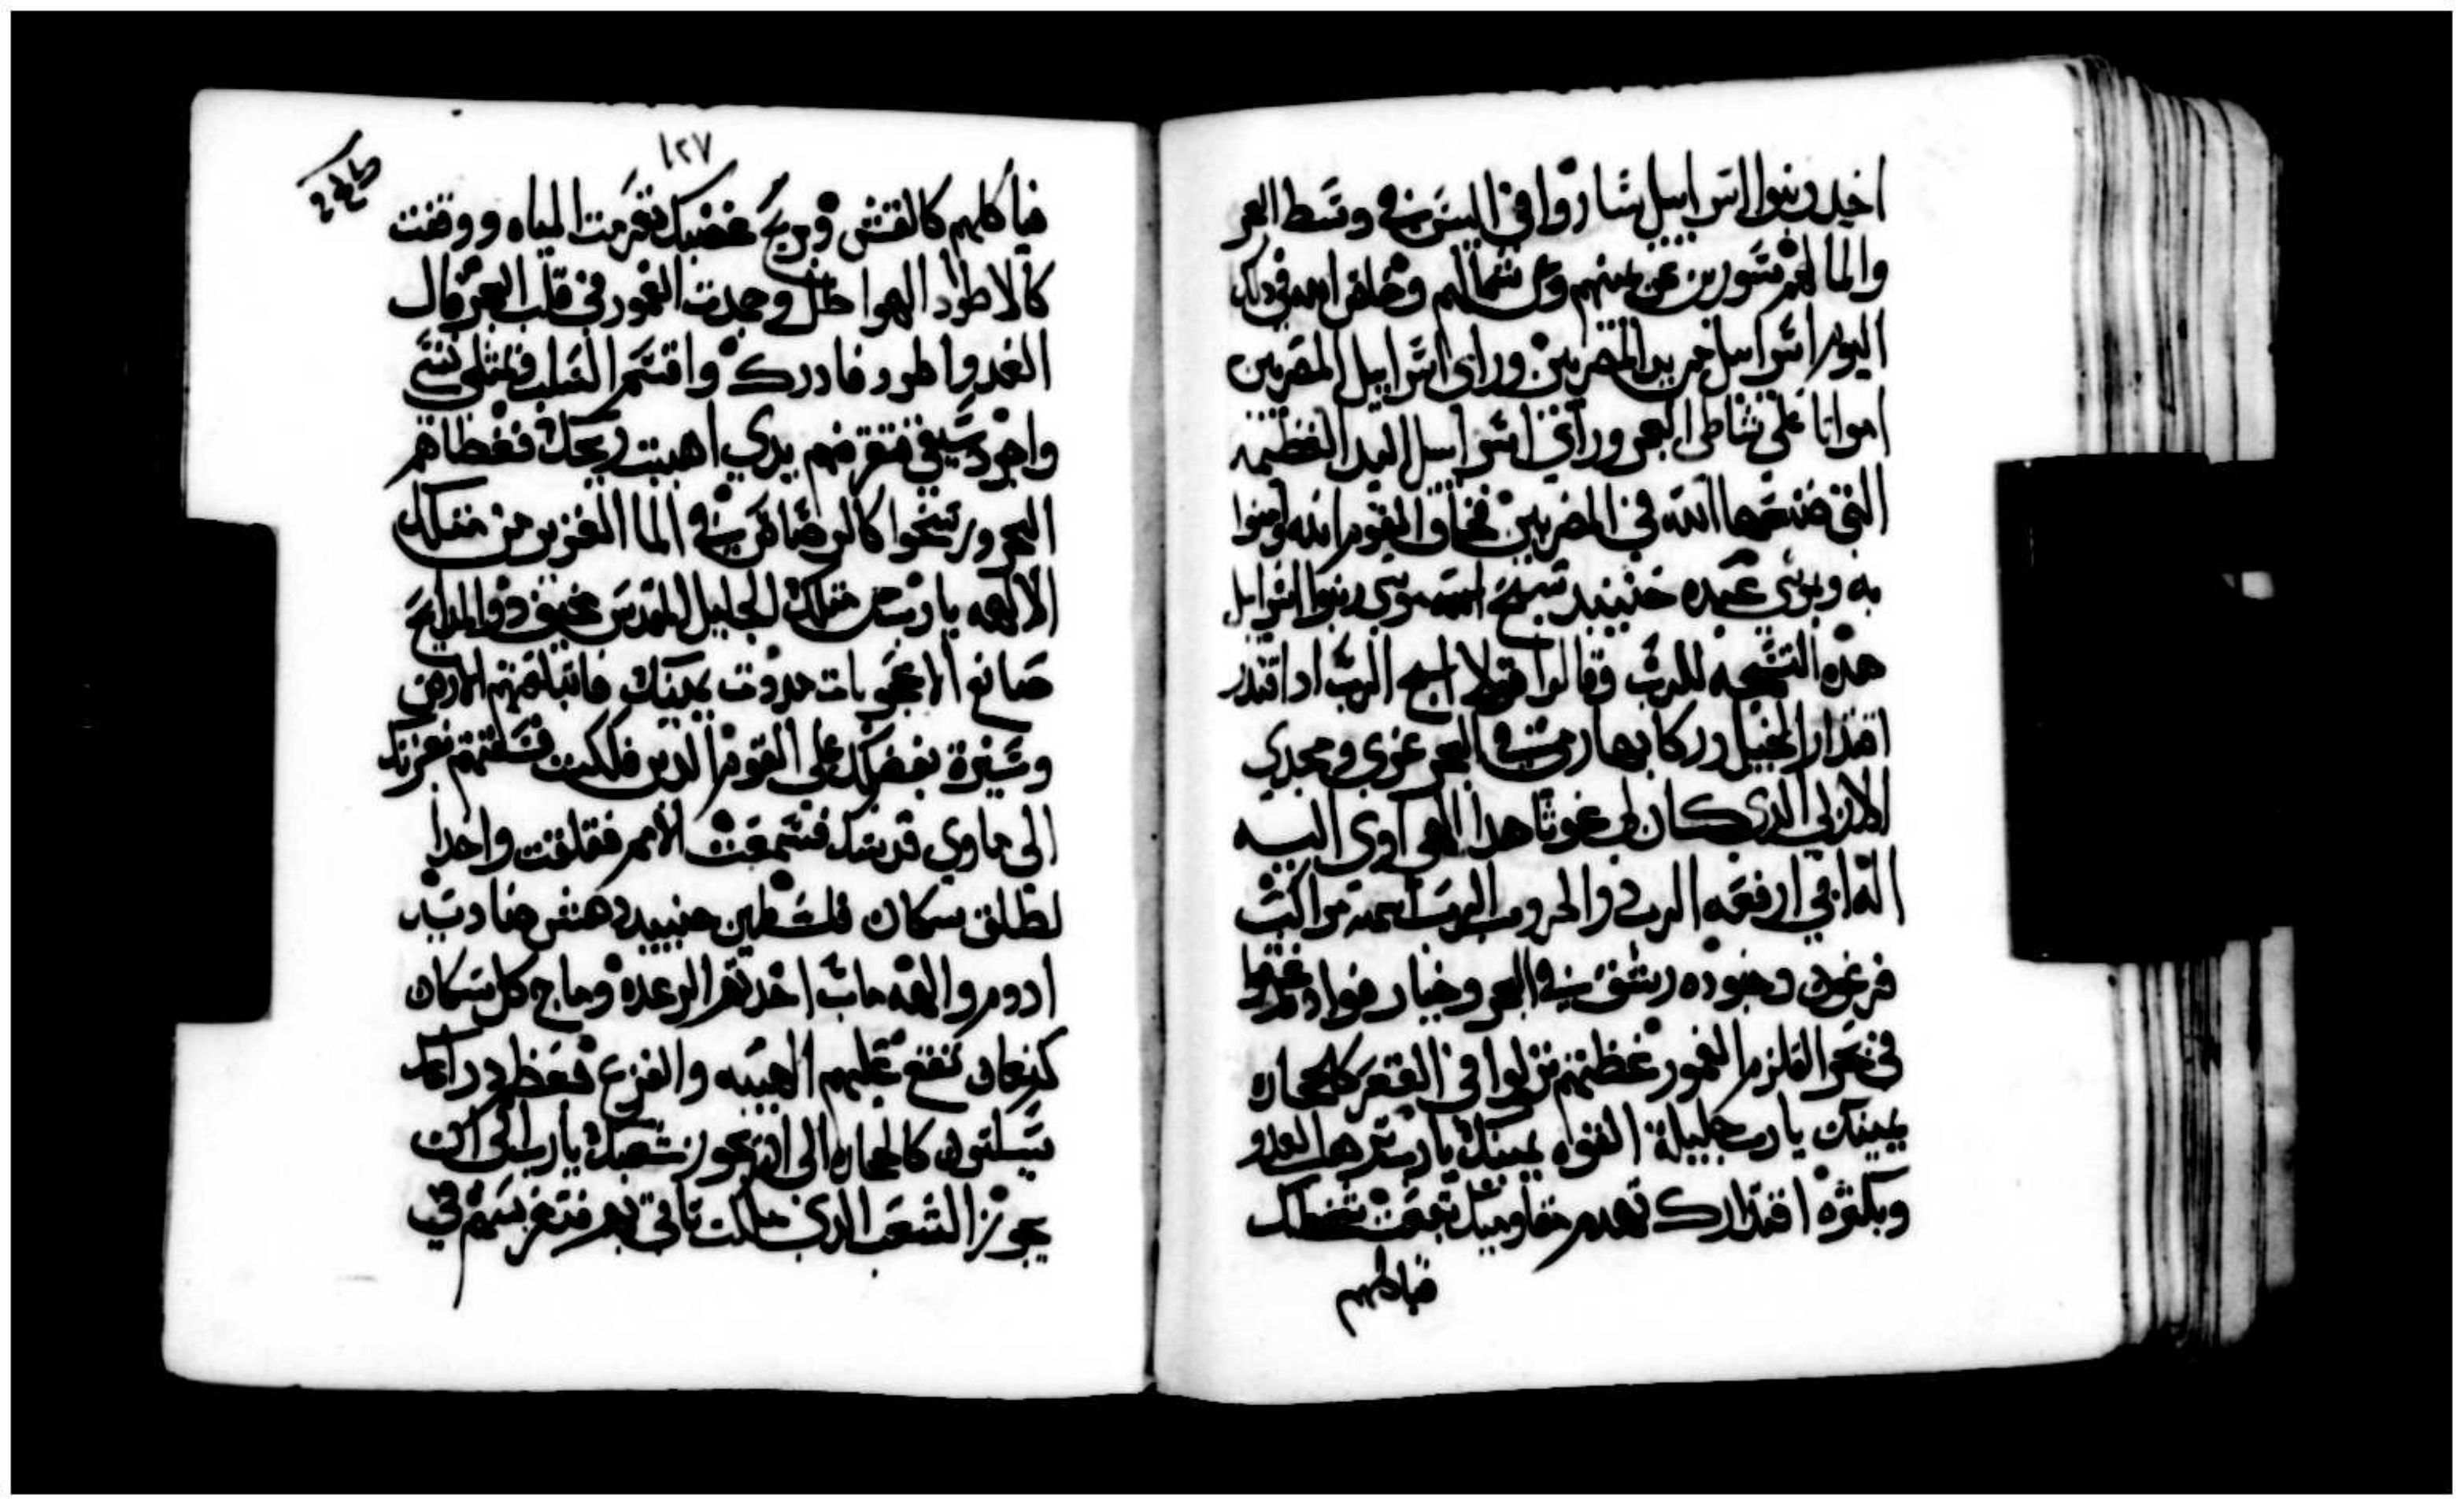 اخيد وبنوا اسراييل ساروا في اليبس في وسط البحر
والما لهم كسورين عن يمينهم وعن شمالهم وخلص الله في ذلك
اليوم اسراييل من يد المصريين وراى اسراييل المصريين
امواتا على شاطى البحر وراى اسراييل اليد العظيمه
التي صنعها الله في المصريين فخاف القوم الله وامنوا
به وبموسى عبده حينيد سبح موسى وبنوا اسراييل
هذه التسبحه للرب وقالوا قولا اسبح الرب اد اقتدر
اقتدار الخيل وركابها رمى في البحر عزي ومجدي
الازلي الدي كان لي غوثا هدا الهي اوي اليه
اله ابي ارفعه الرب دو الحروب الرب اسمه مراكب
فرعون وجنوده رشق في البحر وخيار قواده غرقوا
في بحر القلزم الغمور غطتهم نزلوا في القعر كالحجاره
يمينك يا رب جليلة القوه يمينك يا رب ترهب العدو
وبكثرة اقتدارك تهدم مقاوميك تبعث سخطك
فياكلهم
١٢٧
فياكلهم كالقش وبريح غضبك تعرمت المياه ووقفت
كالاطواد الهواطل وجمدت الغمور في قلب البحر قال
العدوا اطرد فادرك واقسم السلب فتمتلي نفسي
واجرد سيفي فتقرضهم يدي اهببت ريحك فغطاهم
البحر ورسخوا كالرصاص في الما الغزير من مثلك
الالهه يا رب من مثلك الجليل المقدس مخيف دو المدايح
صانع الاعجوبات مددت يمينك فابتلعتهم الارض
وسيرة بفضلك على القوم الدين فككت فسلتهم بعزتك
الى ماوي قدسك فسمعت الامم فقلقت واخد
الطلق سكان فلسطين حينييد دهش صناديد
ادوم والهة ماب اخدتهم الرعده وماج كل سكان
كنعان تقع عليهم الهيبه والفزع بعظم دراعك
يسكتون كالحجاره الى ان يجوز شعبك يا رب الى ان
يجوز الشعب الدي ملكت تاتي بهم فتغرسهم في